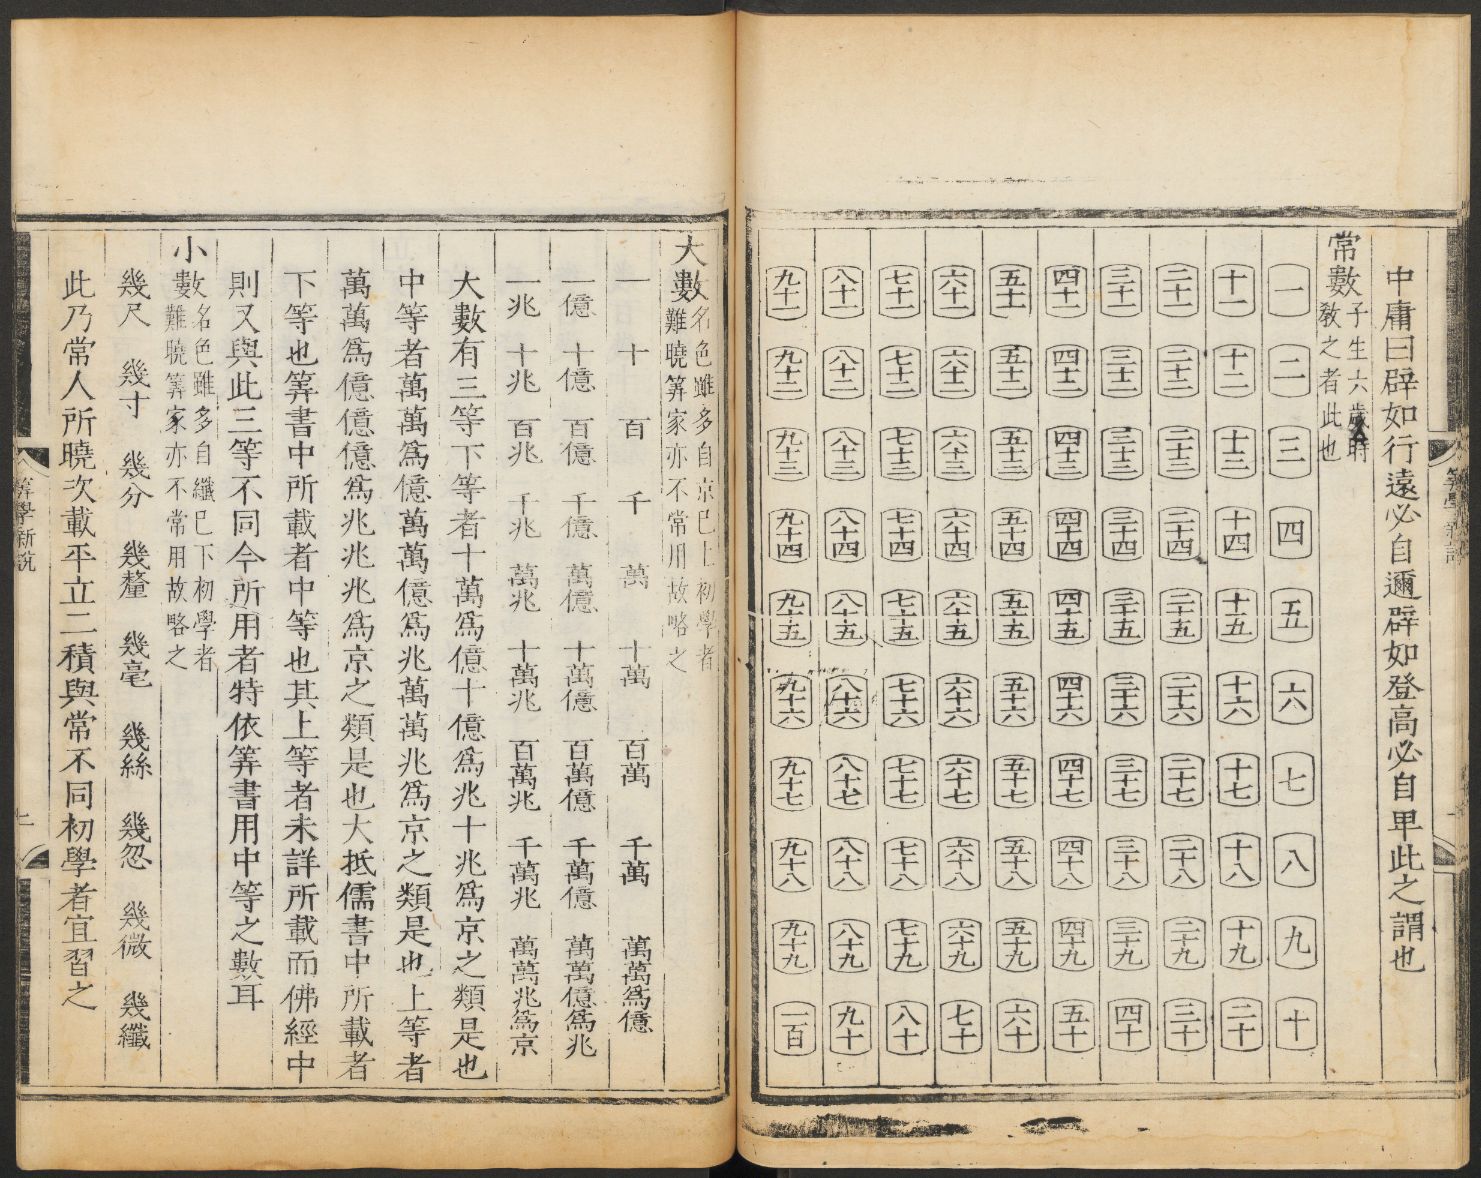 中庸曰辟如行遠必自邇辟如登高必自卑此之謂也
常數子生六歲時
教之者此也
一 二 三 四 五 六 七 八 九 十
十一 十二 十三 十四 十五 十六 十七 十八 十九 二十
二十一 二十二 二十三 二十四 二十五 二十六 二十七 二十八 二十九 三十
三十一 三十二 三十三 三十四 三十五 三十六 三十七 三十八 三十九 四十
四十一 四十二 四十三 四十四 四十五 四十六 四十七 四十八 四十九 五十
五十一 五十二 五十三 五十四 五十五 五十六 五十七 五十八 五十九 六十
六十一 六十二 六十三 六十四 六十五 六十六 六十七 六十八 六十九 七十
七十一 七十二 七十三 七十四 七十五 七十六 七十七 七十八 七十九 八十
八十一 八十二 八十三 八十四 八十五 八十六 八十七 八十八 八十九 九十
九十一 九十二 九十三 九十四 九十五 九十六 九十七 九十八 九十九 一百
大數名色雖多自京已上初學者
難曉筭家亦不常用故略之
一 十 百 千 萬 十萬 百萬 千萬 萬萬為億
一億 十億 百億 千億 萬億 十萬億 百萬億 千萬億 萬萬億為兆
一兆 十兆 百兆 千兆 萬兆 十萬兆 百萬兆 千萬兆 萬萬兆為京
大數有三等下等者十萬為億十億為兆十兆為京之類是也
中等者萬萬為億萬萬億為兆萬萬兆為京之類是也上等者
萬萬為億億億為兆兆兆為京之類是也大抵儒書中所載者
下等也筭書中所載者中等也其上等者未詳所載而佛經中
則又與此三等不同今所用者特依筭書用中等之數耳
小數名色雖多自纖已下初學者
難曉筭家亦不常用故略之
幾尺 幾寸 幾分 幾釐 幾毫 幾絲 幾忽 幾微 幾纖
此乃常人所曉次載平立二積與常不同初學者宜習之
筭學新說
二